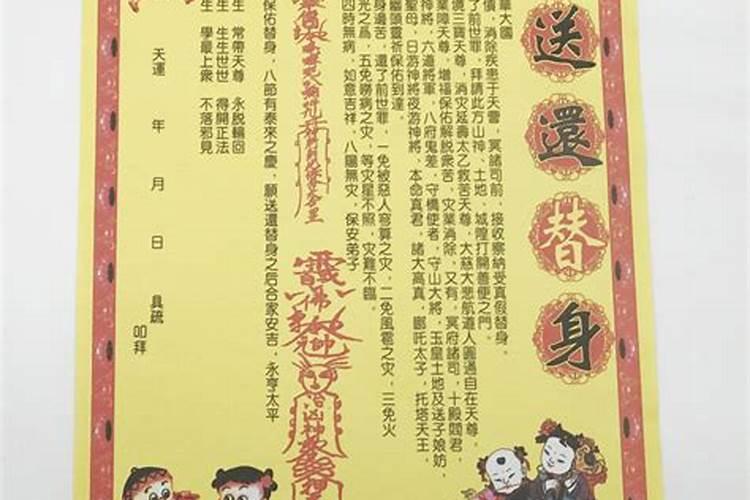 送還替身
華大國
債,消除疾患于天曹,冥諸司前,接收察納受真假替身。
了前世罪,拜請此方山神、土地、城隍打開善便之門。
境三寶天尊,消灾延壽太乙救苦天尊,大慈大悲航道人圓通自在天尊。
業障天尊,增福保佑解脱衆苦,灾業消除,又有,冥府諸司,十殿閻君,
神將,六道將軍,八府鬼差,守橋使者,守山大將,玉皇土地及送子娘妨,
聖母,日游神將夜游神將,本命真君,諸大高真,哪吒太子,托塔天王,
幽顯靈祈保佑到達。
身邊苦,還了前世罪,一免被惡人穹算之灾,二免風雹之灾,三免火
光之爲,五免勝病之灾,等灾星不照,灾難不臨。
四時無病,如意吉祥,八賜無灾,保安弟子
保佑替身,八節有泰來之慶,願送還替身之后合家安吉,永亨太平
生 常帶天尊 永脱輪回
生 生生世世 得開正法
生 學最上衆 不落邪見
天運 年 月 日 具疏 叩拜